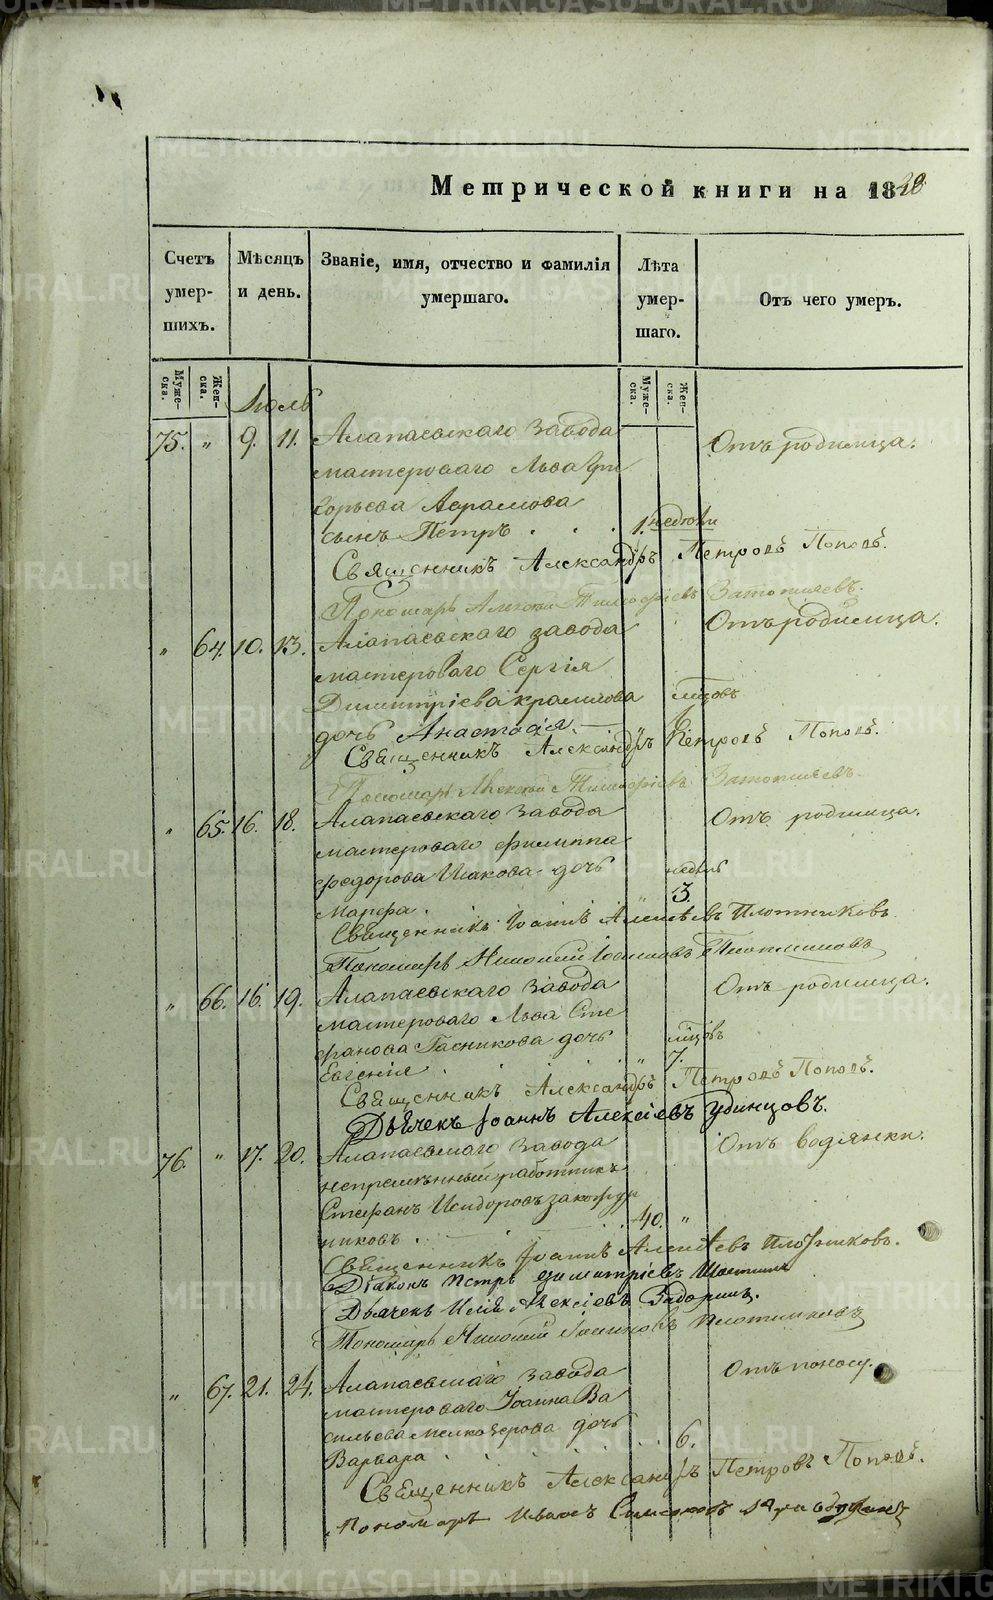 Метрической книги на 18
Счетъ умершихъ.
Мѣсяцъ и день.
Званіе, имя, отчество и фамилія умершаго.
Лѣта умершаго.
Отъ чего умеръ.
Мужеска.
Женска.
Мужеска.
Женска.
Июль
75. " 9. 11. Алапаевскаго завода
Отъ родимца.
мастероваго Льва Гри
горьева Аврамова
сынъ Петръ . . . 1. недѣли
Священникъ Александръ Петровъ Поповъ.
Пономарь Алексѣй Тимофѣевъ
" 64. 10. 13. Алапаевскаго завода
Отъ родимца.
мастероваго Сергія
Димитріева мѣсцовъ
дочь Анастасія 6.
Священникъ Александръ Петровъ Поповъ.
Пономарь Алексѣй Тимофѣевъ
" 65. 16. 18. Алапаевскаго завода
Отъ родимца.
мастероваго Филиппа
Федорова Исакова дочь недѣль
Марфа. " 3.
Священникъ Іоаннъ Алексѣевъ Плотниковъ
Пономарь Николай Іоанновъ Плотниковъ
" 66. 16. 19. Алапаевскаго завода
Отъ родимца.
мастероваго Льва Сте
фанова дочь мѣсцовъ
Евгенія . . . " 7.
Священникъ Александръ Петровъ Поповъ.
Дьячекъ Іоаннъ Алексіевъ Удинцовъ.
76. " 17. 20. Алапаевскаго завода
Отъ водянки.
непремѣнный работникъ
Стефанъ Исидоровъ Закожур
никовъ . . . 40. "
Священникъ Іоаннъ Алексѣевъ Плотниковъ.
Діаконъ Петръ Димитріевъ
Дьячекъ Илія Алексіевъ
Пономарь Николай Іоанновъ Плотниковъ
" 67. 21. 24. Алапаевскаго завода
Отъ поносу.
мастероваго Іоанна Ва
сильева Мелкозерова дочь
Варвара . . . 6.
Священникъ Александръ Петровъ Поповъ.
Пономарь Иванъ
METRIKI.GASO-URAL.RU